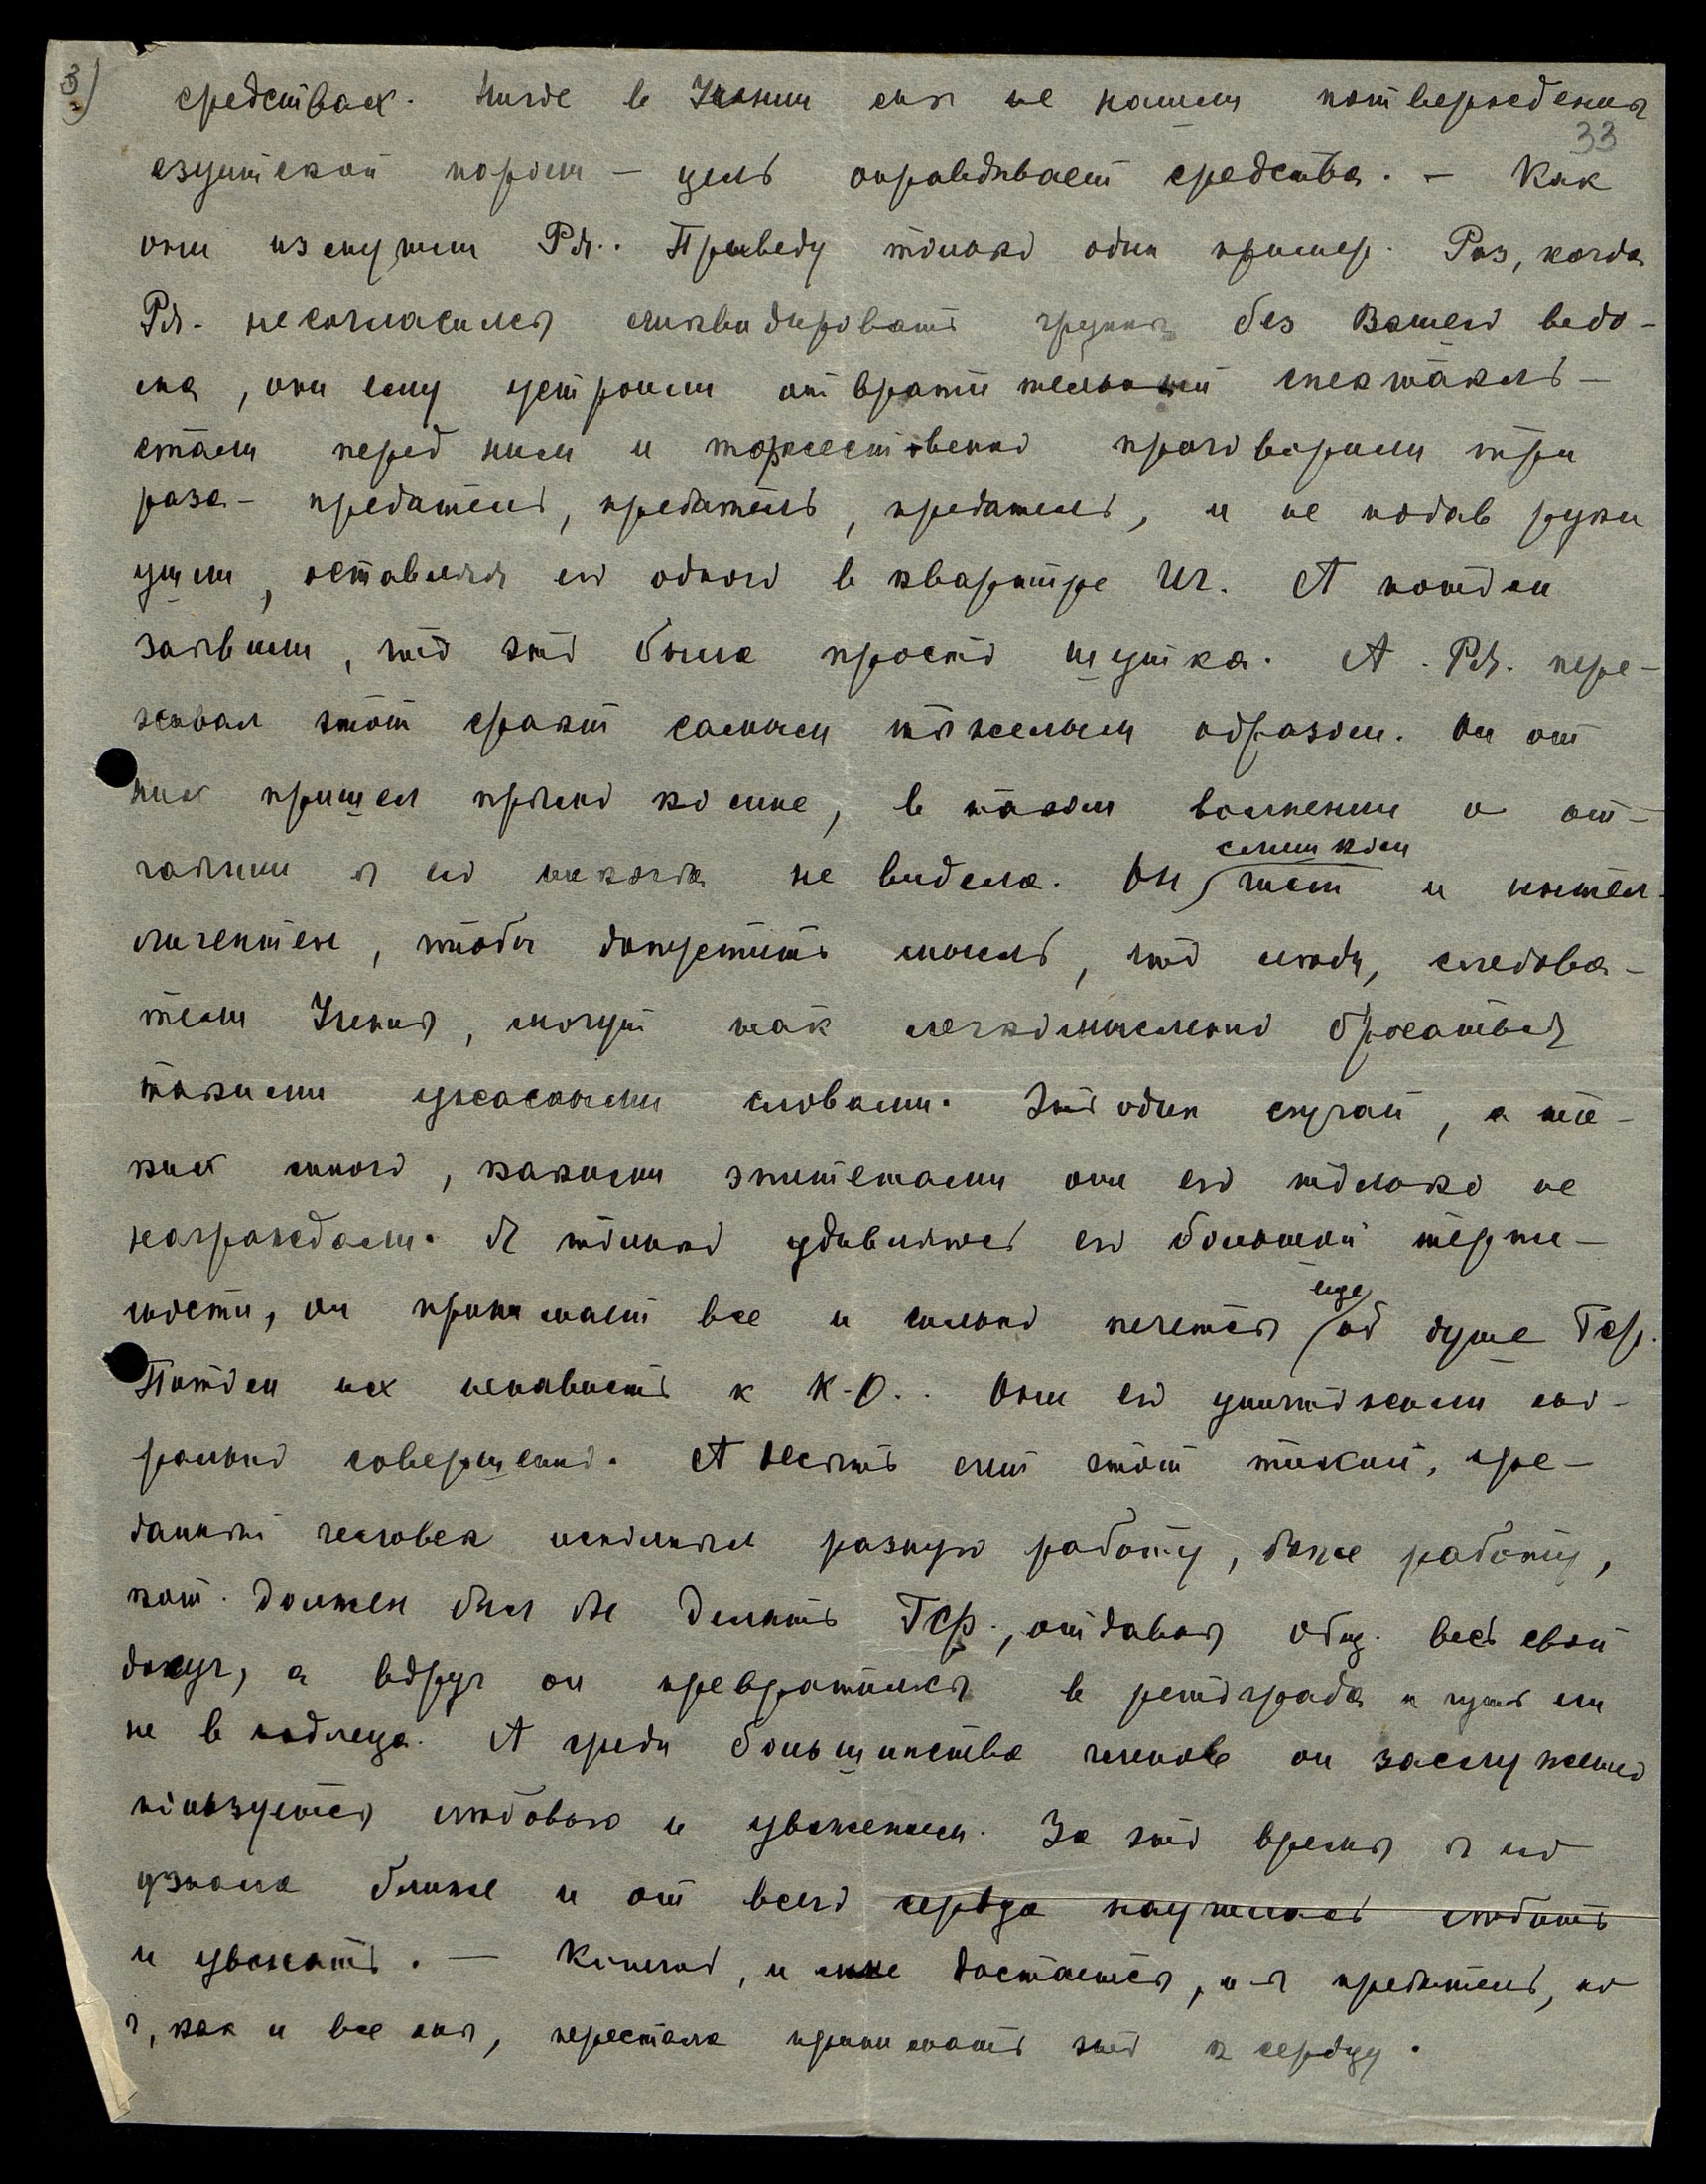 3)
средствах. Нигде в Учении мы не нашли потверждения
33
езуитской морали — цель оправдывает средства. — Как
они измучили Рд.. Приведу только один пример. Раз, когда
Рд. несогласился ликвидировать группы без Вашего ведо-
ма, они ему устроили отвратительный спектакль —
стали перед ним и торжественно проговорили три
раза — предатель, предатель, предатель, и не подав руки
ушли, оставляя его одного в квартире Иг. А потом
заявили, что это была просто шутка. А. Рд. пере-
живал этот факт самым тяжелым образом. Он от
них пришел прямо ко мне, в таком волнении и от-
чаянии я его никогда не видела. Он слишком чист и интел-
лигентен, чтобы допустить мысль, что люди, следова-
тели Учения, могут так легкомысленно бросаться
такими ужасными словами. Это один случай, а та-
ких много, какими эпитетами они его только не
награждали. Я только удивляюсь его большой терпи-
мости, он принимает все и сильно печется еще об душе Гар.
Потом их ненависть к К-О.. Они его уничтожили мо-
рально совершенно. А десять лет этот тихий, пре-
данный человек исполнял разную работу, даже работу,
кот. должен был бы делать Гар., отдавая Общ. весь свой
досуг, а вдруг он превратился в ретограда и чуть ли
не в подлеца. А среди большинства членов он заслуженно
пользуется любовью и уважением. За это время я его
узнала ближе и от всего сердца научилась любить
и уважать. — Конечно, и мне достается, и я предатель, но
я, как и все мы, перестала принимать это к сердцу.